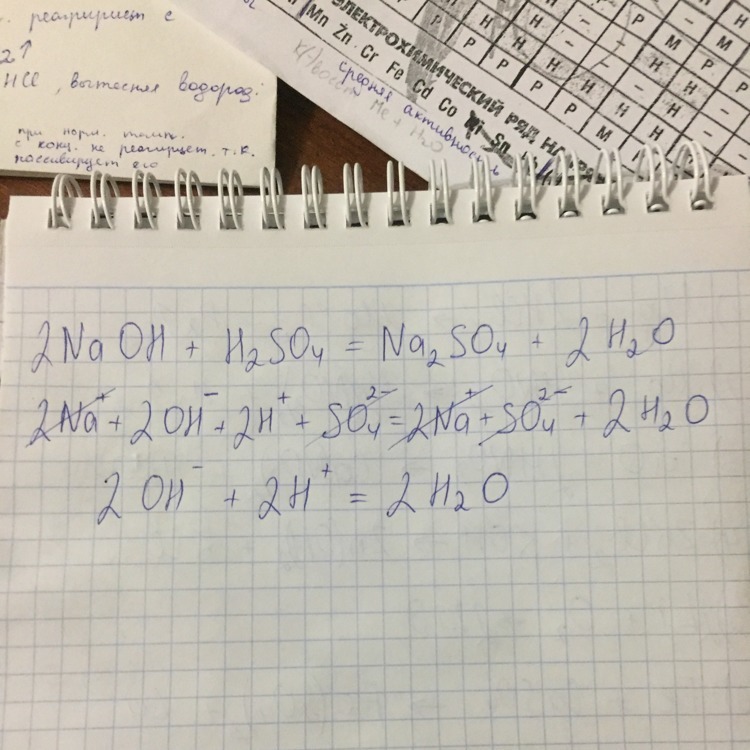 реагирует с
2↑
HCl, вытесняя водород:
при норм. темп.
с конц. не реагирует, т.к.
пассивирует его
ЭЛЕКТРОХИМИЧЕСКИЙ РЯД
Mn Zn Cr Fe Cd Co Sn
средняя активность
Me + H₂O
2NaOH + H₂SO₄ = Na₂SO₄ + 2H₂O
2Na⁺ + 2OH⁻ + 2H⁺ + SO₄²⁻ = 2Na⁺ + SO₄²⁻ + 2H₂O
2OH⁻ + 2H⁺ = 2H₂O